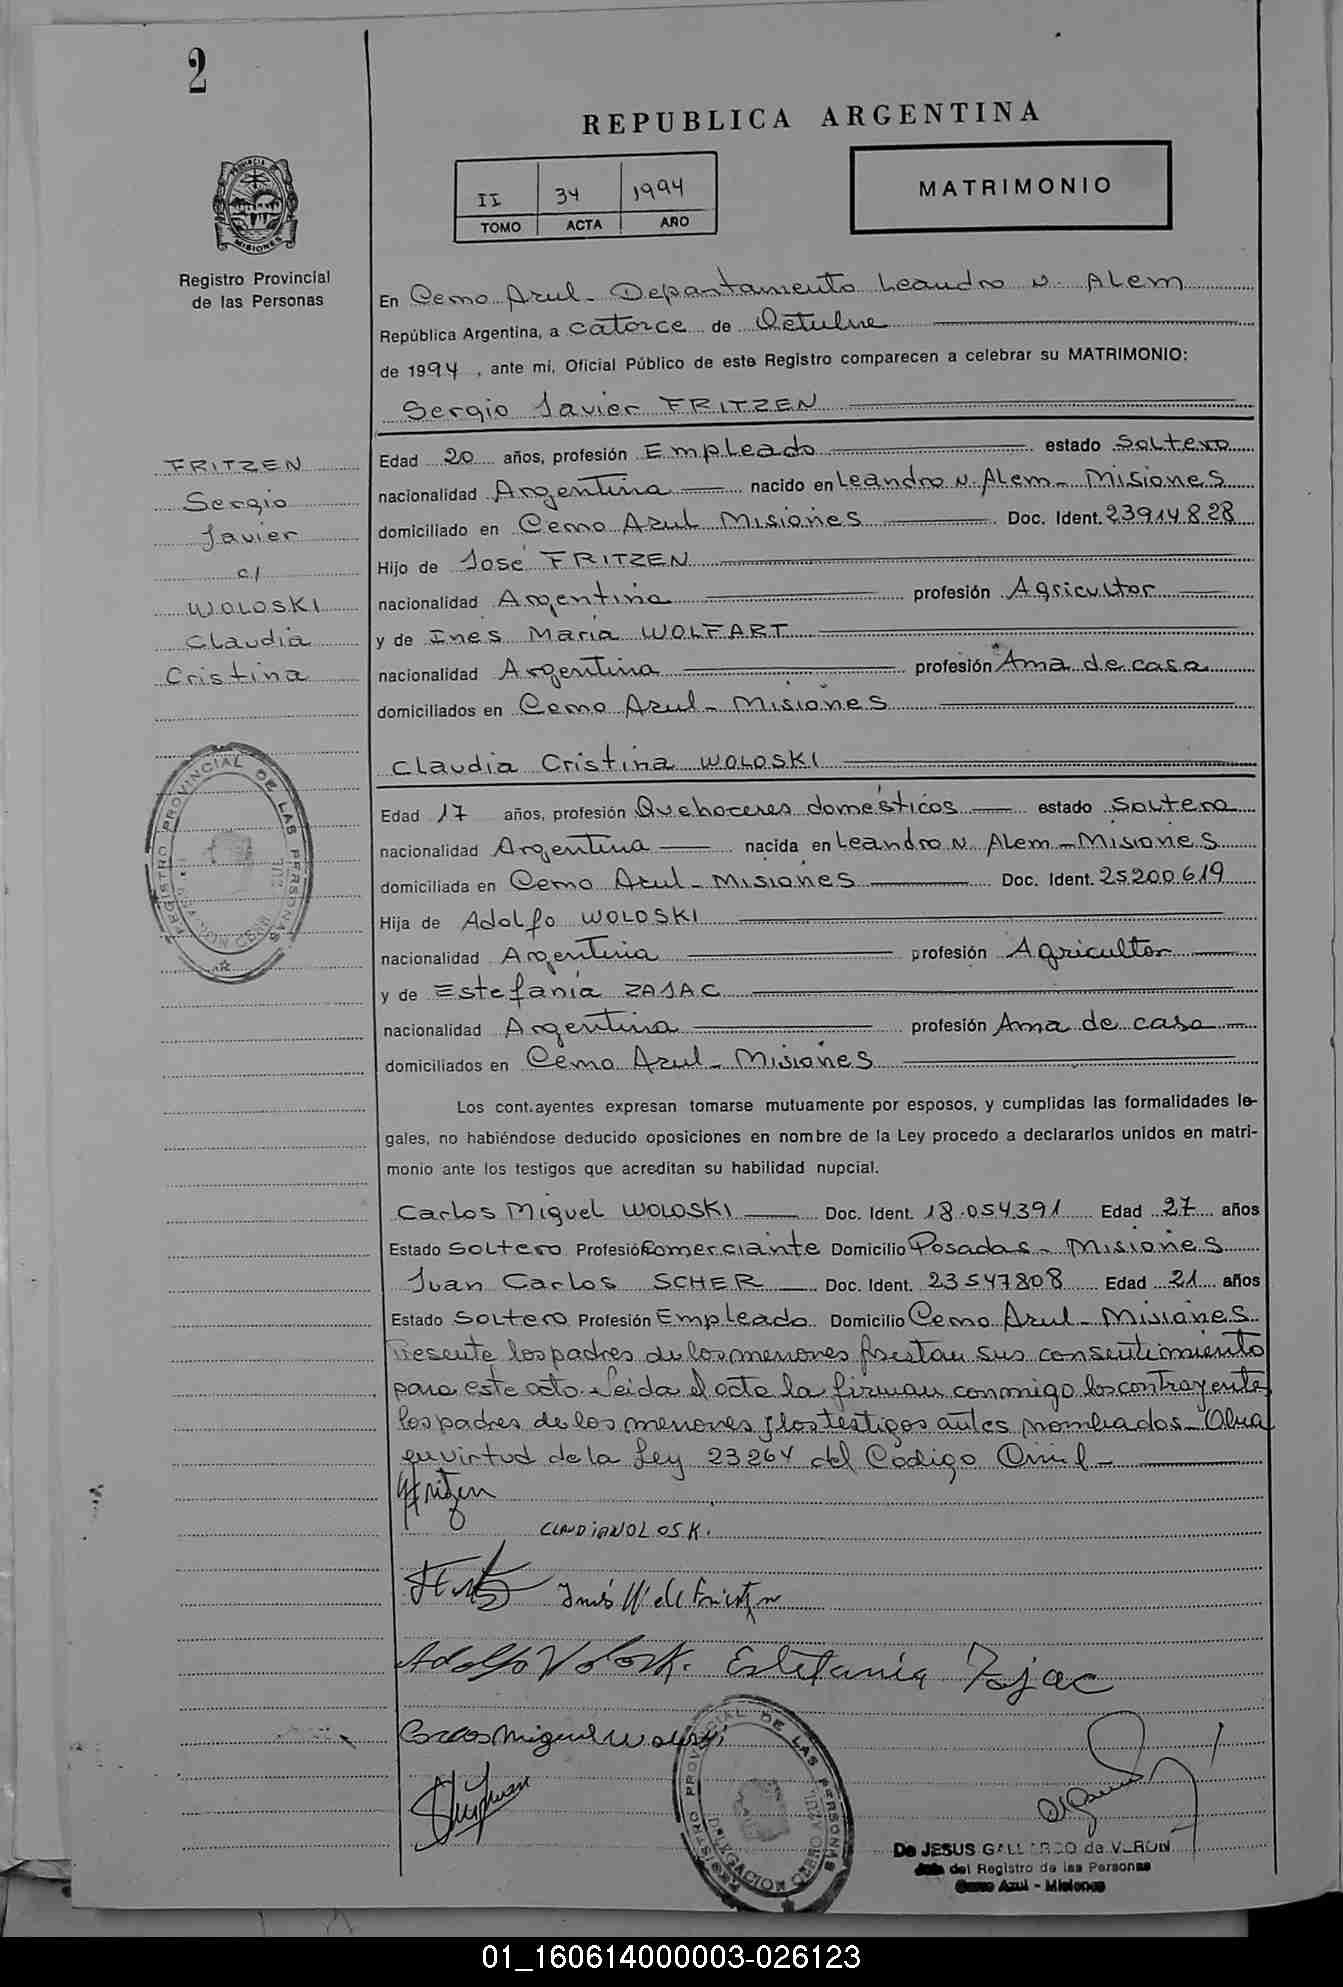 2
REPUBLICA ARGENTINA
II 34 1994
TOMO ACTA AÑO
MATRIMONIO
PROVINCIA DE
MISIONES
Registro Provincial
de las Personas
En Cerro Azul - Departamento Leandro N. Alem
República Argentina, a catorce de Octubre
de 1994, ante mi, Oficial Público de este Registro comparecen a celebrar su MATRIMONIO:
Sergio Javier FRITZEN
FRITZEN
Sergio
Javier
c/
WOLOSKI
Claudia
Cristina
Edad 20 años, profesión Empleado estado Soltero
nacionalidad Argentina nacido en Leandro N. Alem - Misiones
domiciliado en Cerro Azul Misiones Doc. Ident. 23914828
Hijo de José FRITZEN
nacionalidad Argentina profesión Agricultor
y de Inés María WOLFART
nacionalidad Argentina profesión Ama de casa
domiciliados en Cerro Azul - Misiones
Claudia Cristina WOLOSKI
Edad 17 años, profesión Quehaceres domésticos estado Soltera
nacionalidad Argentina nacida en Leandro N. Alem - Misiones
domiciliada en Cerro Azul - Misiones Doc. Ident. 25200619
Hija de Adolfo WOLOSKI
nacionalidad Argentina profesión Agricultor
y de Estefanía ZAJAC
nacionalidad Argentina profesión Ama de casa
domiciliados en Cerro Azul - Misiones
REGISTRO PROVINCIAL DE LAS PERSONAS
Los cont.ayentes expresan tomarse mutuamente por esposos, y cumplidas las formalidades le-
gales, no habiéndose deducido oposiciones en nombre de la Ley procedo a declararlos unidos en matri-
monio ante los testigos que acreditan su habilidad nupcial.
Carlos Miguel WOLOSKI Doc. Ident. 18.054391 Edad 27 años
Estado Soltero Profesión Comerciante Domicilio Posadas - Misiones
Juan Carlos SCHER Doc. Ident. 23547808 Edad 21 años
Estado Soltero Profesión Empleado Domicilio Cerro Azul - Misiones
Presente los padres de los menores prestan sus consentimiento
para este acto. Leida el acta la firman conmigo los contrayente
los padres de los menores y los testigos antes nombrados - Obra
en virtud de la Ley 23264 del Código Civil -
Fritzen
CLAUDIA WOLOSK.
Adolfo Wolosk. Estefania Zajac
Carlos Miguel Woloski
REGISTRO PROVINCIAL DE LAS PERSONAS
DELEGACION CERRO AZUL
De JESUS GALLARDO de VERON
Jefe del Registro de las Personas
Cerro Azul - Misiones
01_160614000003-026123